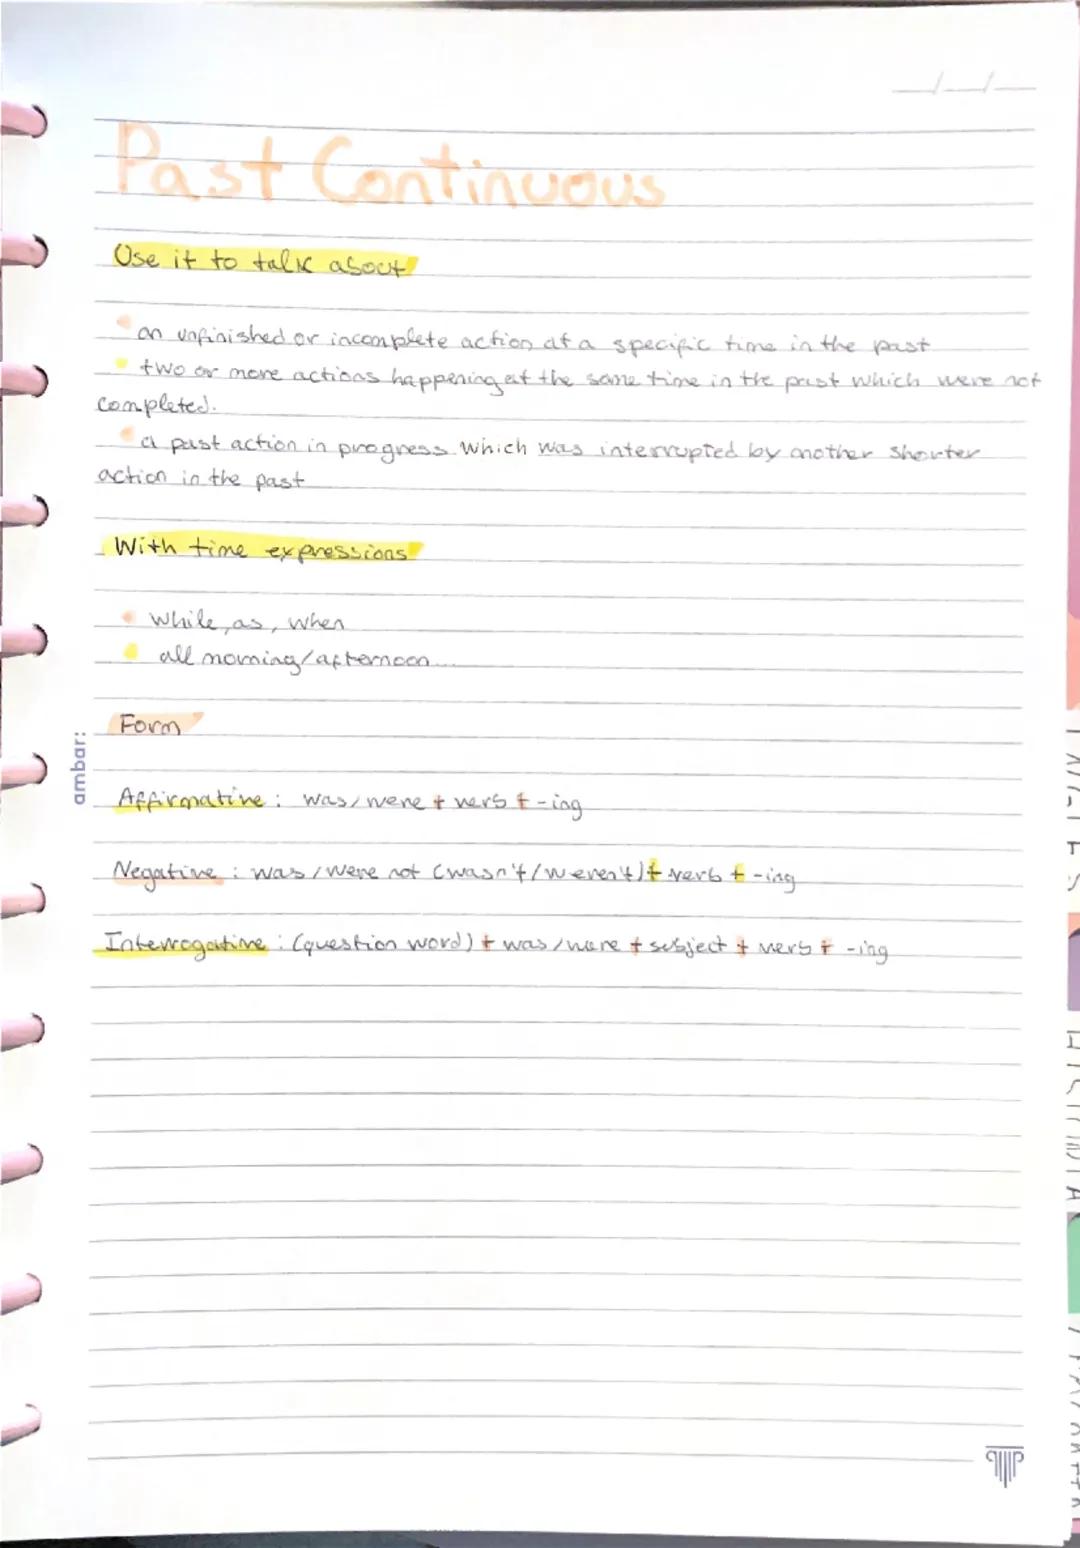 Past Continuous
Use it to talk about
an unfinished or incomplete action at a specific time in the past
two or more actions happening at the same time in the past which were not
completed.
a past action in progress which was interrupted by another shorter
action in the past
With time expressions
while, as, when
all morning/afternoon...
Form
ambar:
Affirmative: was/were + verb + -ing
Negative: was/were not (wasn't/weren't) + verb + -ing
Interrogative: (question word) + was/were + subject + verb + -ing